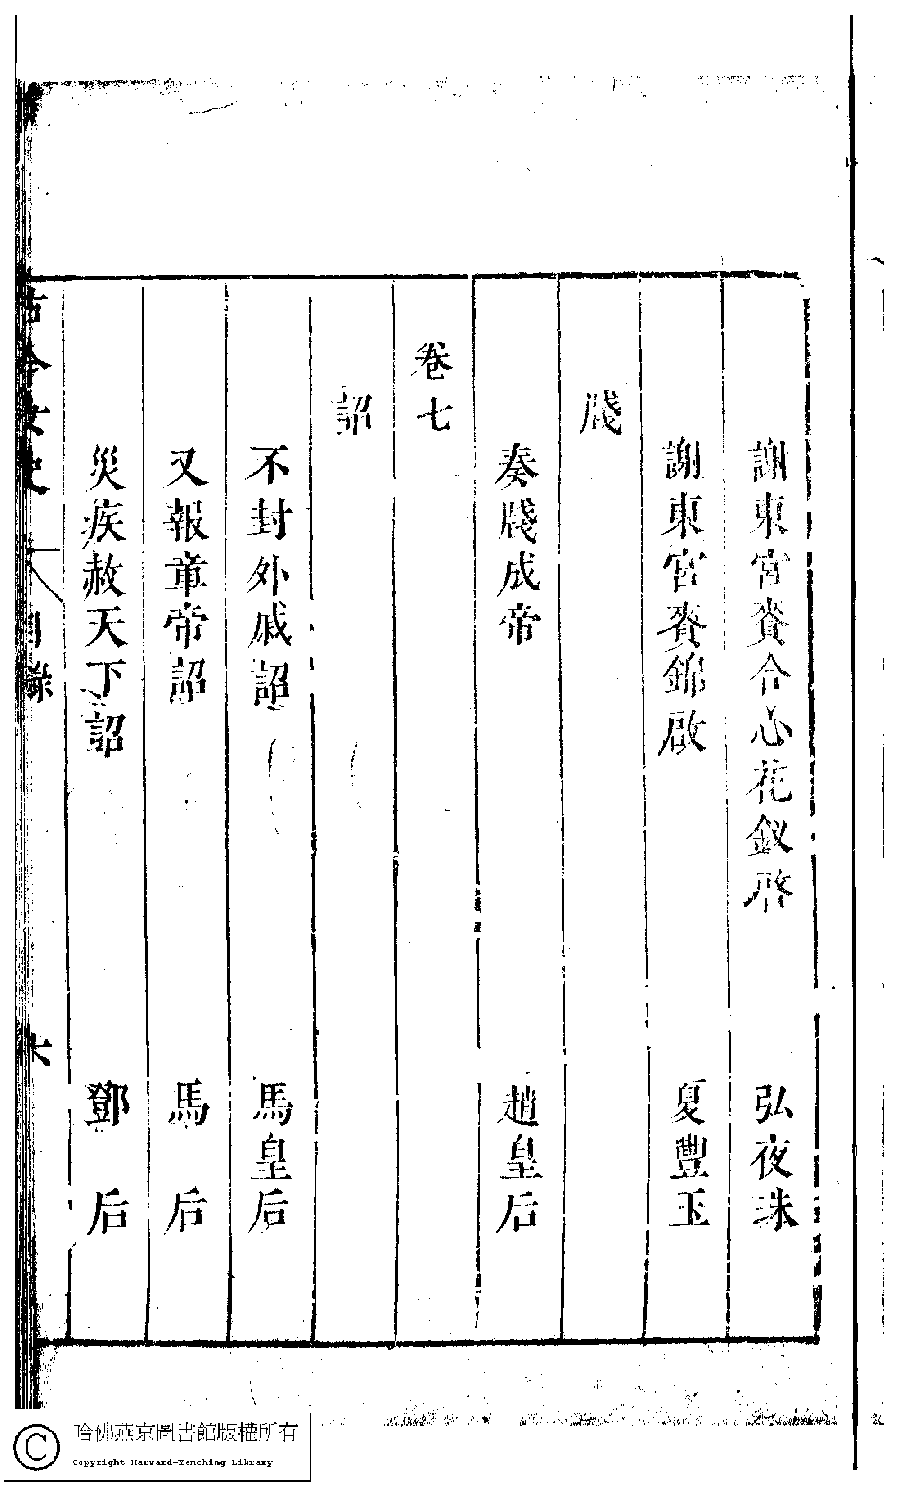 謝東宮賚合心花釵啓　弘夜珠
謝東宮賚錦啟　夏豐玉
牋
奏牋成帝　趙皇后
卷七
詔
不封外戚詔　馬皇后
又報章帝詔　馬后
災疾赦天下詔　鄧后
古今女史　目錄　六
哈佛燕京圖書館版權所有
Copyright Harvard-Yenching Library